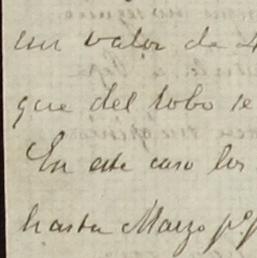 un valor de
que del lobo se
En este caso los
hasta Marzo p.º p